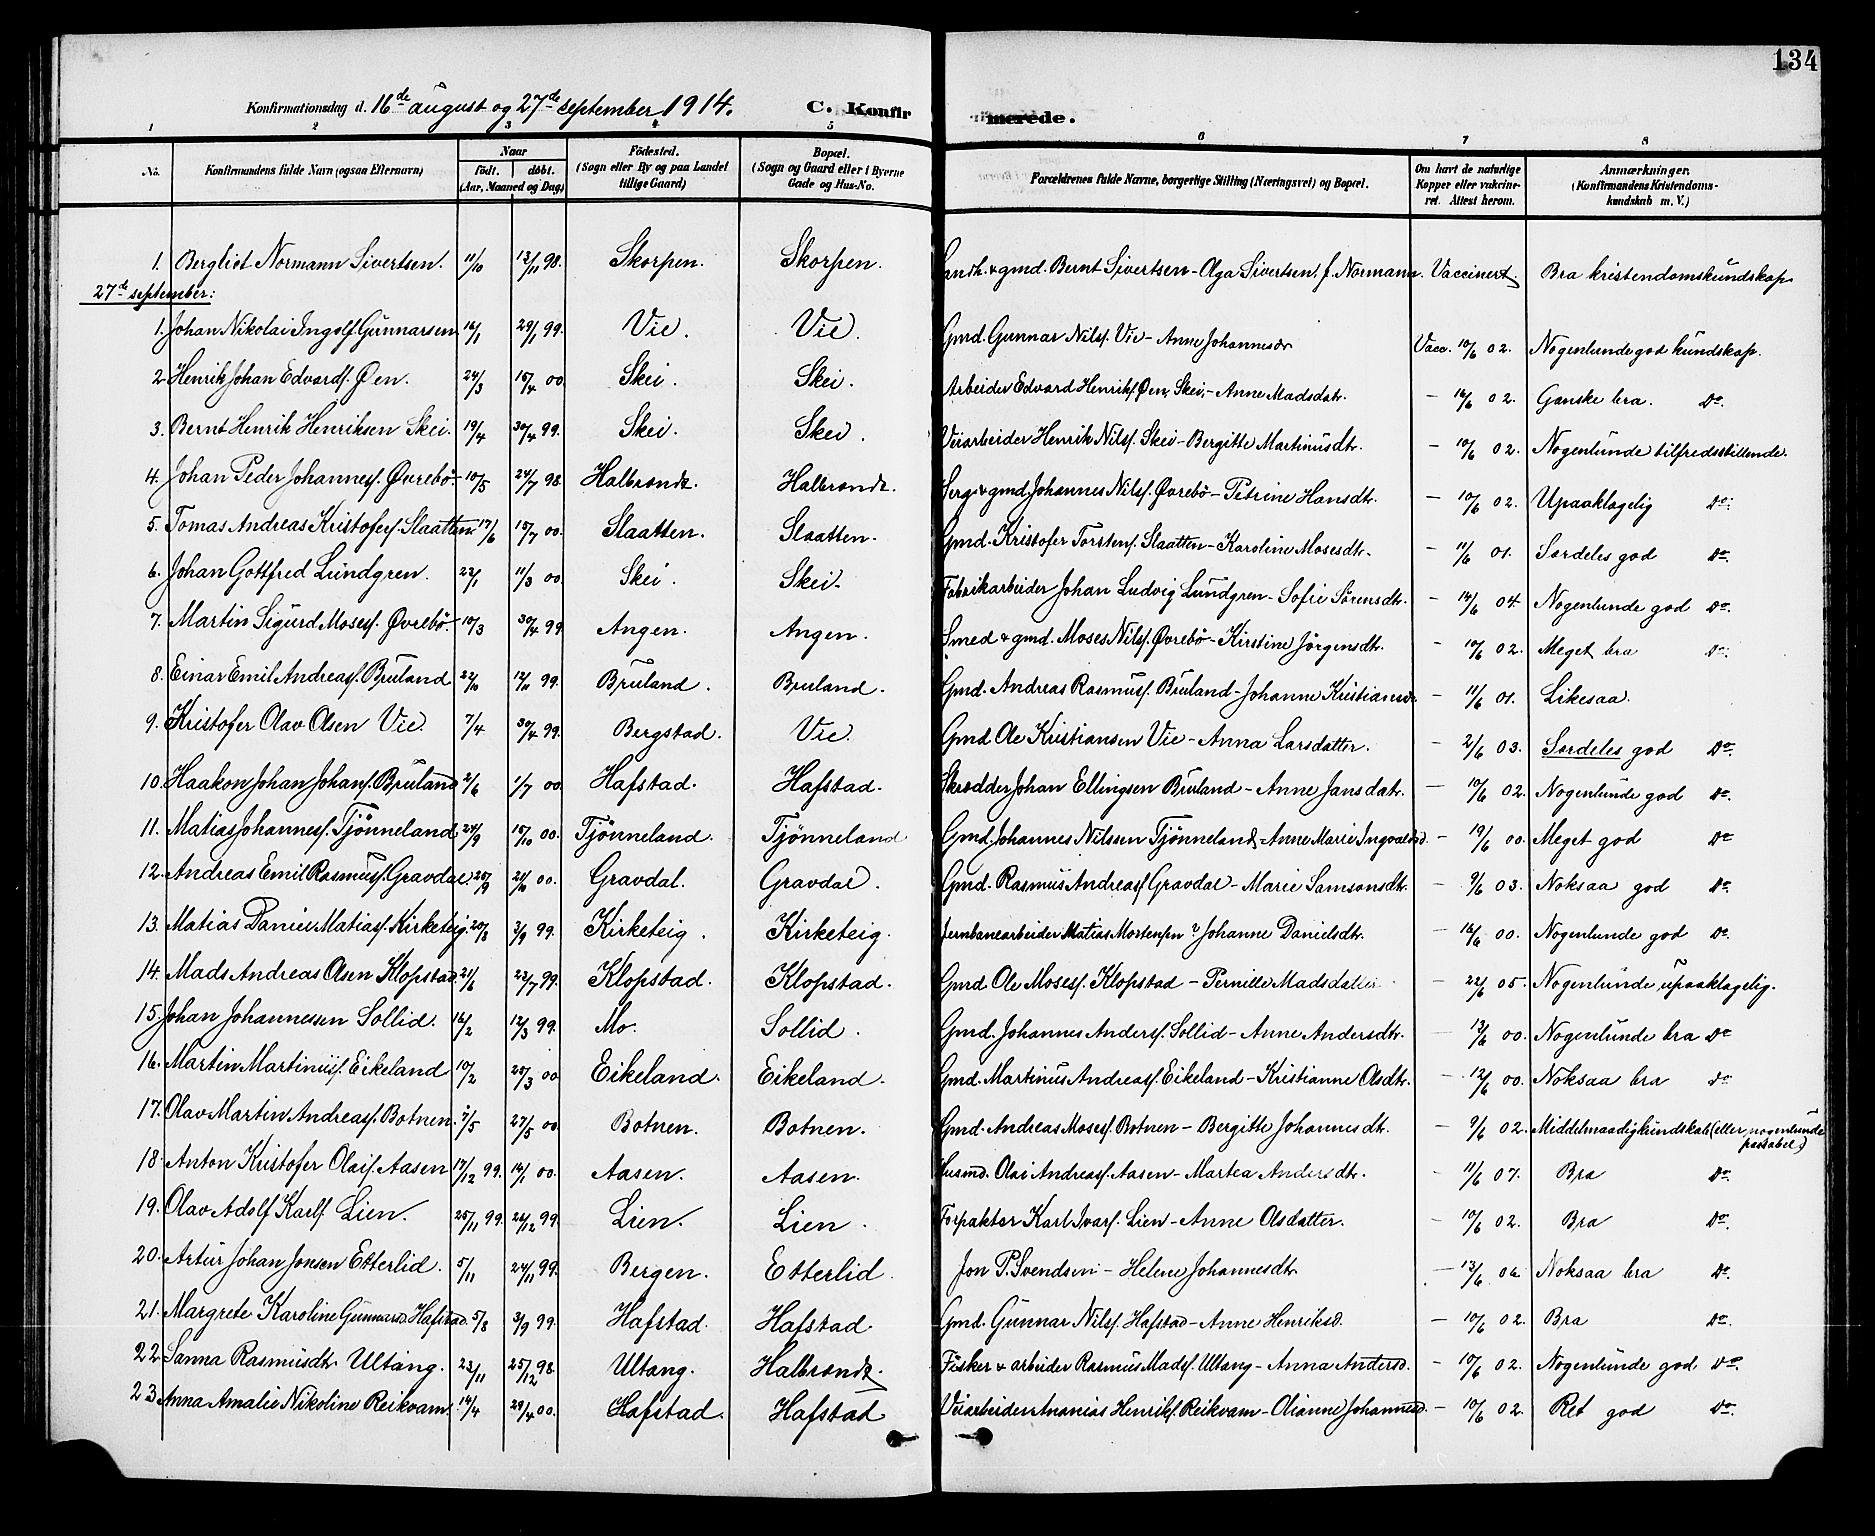 134
Konfirmationsdag d. 16de august og 27de september 1914. C. Konfirmerede.
1 2 3 4 5 6 7 8
No. Konfirmandens fulde Navn (ogsaa Efternavn) Naar født. døbt. (Aar, Maaned og Dag) Fødested. (Sogn eller By og paa Landet tillige Gaard) Bopæl. (Sogn og Gaard eller i Byerne Gade og Hus-No. Forældrenes fulde Navne, borgerlige Stilling (Næringsvei) og Bopæl. Om havt de naturlige Kopper eller vakcineret. Attest herom. Anmærkninger. (Konfirmandens Kristendomskundskab m. V.)
1. Bergliot Normann Sivertsen. 11/10 13/11 98. Skorpen. Skorpen. Landh. & gmd. Bernt Sivertsen - Olga Sivertsen, f. Normann. Vaccinert. Bra kristendomskundskap
27de september:
1. Johan Nikolai Ingolf Gunnarsen 16/1 29/1 99. Vie. Vie. Gmd. Gunnar Nilsf. Vie - Anne Johannesdr Vacc. 10/6 02. Nogenlunde god kundskap.
2. Henrik Johan Edvardf. Øen. 24/3 15/4 00. Skei. Skei. Arbeider Edvard Henriksf. Øen, Skei, - Anne Madsdatr. - 16/6 02. Ganske bra. Do.
3. Bernt Henrik Henriksen Skei. 19/4 30/4 99. Skei. Skei. Veiarbeider Henrik Nilsf. Skei - Bergitte Martinusdtr. - 10/6 02. Nogenlunde tilfredsstillende.
4. Johan Peder Johannesf. Øvrebö. 10/5 24/7 98 Halbrendt. Halbrendt. Serg. & gmd Johannes Nilsf. Øvrebö - Petrine Hansdtr. - 10/6 02. Upaaklagelig Do.
5. Tomas Andreas Kristoferf. Slaatten. 17/6 15/7 00. Slaatten. Slaatten. Gmd. Kristofer Torstenf. Slaatten - Karoline Mosesdtr. - 11/6 01. Særdeles god Do.
6. Johan Gottfred Lundgren. 22/1 11/3 00. Skei. Skei. Fabrikarbeider Johan Ludvig Lundgren - Sofie Sörensdtr. - 14/6 04. Nogenlunde god Do.
7. Martin Sigurd Mosesf. Øvrebö. 10/3 30/4 99 Angen. Angen. Smed & gmd. Moses Nilsf. Øvrebö - Kirstine Jörgensdtr. - 10/6 02. Meget bra Do.
8. Einar Emil Andreasf. Bruland 22/10 12/11 99. Bruland. Bruland. Gmd. Andreas Rasmusf. Bruland - Johanne Kristiansdr. - 11/6 01. Likesaa.
9. Kristofer Olav Olsen Vie. 7/4 30/4 99. Bergstad. Vie. Gmd. Ole Kristiansen Vie - Anna Larsdatter. - 2/6 03. Særdeles god Do.
10. Haakon Johan Johanf. Bruland 2/6 1/7 00. Hafstad. Hafstad. Skrædder Johan Ellingsen Bruland - Anne Jansdatr. - 10/6 02. Nogenlunde god Do.
11. Matias Johannesf. Tjönneland. 24/9 15/10 00. Tjönneland. Tjönneland Gmd. Johannes Nilssen Tjönneland - Anne Marie Ingvalsd. - 19/6 00. Meget god Do
12. Andreas Emil Rasmusf. Gravdal. 25/9 21/10 00. Gravdal. Gravdal. Gmd. Rasmus Andreasf. Gravdal - Marie Samsonsdtr. - 9/6 03. Noksaa god Do.
13. Matias Daniel Matiasf. Kirketeig. 20/8 3/9 99. Kirketeig. Kirketeig. Jernbanearbeider Matias Mortensen & Johanne Danielsdtr. - 16/6 00. Nogenlunde god Do.
14. Mads Andreas Olsen Klopstad. 21/6 23/7 99. Klopstad. Klopstad. Gmd. Ole Mosesf. Klopstad - Pernille Madsdatter - 22/6 05. Nogenlunde upaaklagelig.
15. Johan Johannessen Sollid. 16/2 12/3 99. Mo. Sollid. Gmd. Johannes Andersf. Sollid - Anne Andersdtr. - 13/6 00. Nogenlunde bra Do
16. Martin Martinusf. Eikeland 10/2 25/3 00 Eikeland. Eikeland. Gmd. Martinus Andreasf. Eikeland - Kristianne Olsdtr. - 12/6 00. Noksaa bra do
17. Olav Martin Andreasf. Botnen. 2/5 27/5 00. Botnen. Botnen. Gmd. Andreas Mosesf. Botnen - Bergitte Johannesdt. - 9/6 02. Middelmaadig kundskab (eller nogenlunde passabel)
18. Anton Kristofer Olaif. Aasen 17/12 99. 14/1 00. Aasen. Aasen. Husmd. Olai Andreasf. Aasen - Martea Andersdtr. - 11/6 07. Bra Do.
19. Olav Adolf Karlf. Lien. 25/11 99. 26/12 99. Lien. Lien. Forpakter Karl Ivarf. Lien - Anne Olsdatter. - 10/6 02. Bra Do.
20. Artur Johan Jonsen Etterlid. 5/11 24/11 99. Bergen. Etterlid. Jon P. Svendsen - Helene Johannesdtr - 13/6 06 Noksaa bra Do.
21. Margrete Karoline Gunnarsd. Hafstad. 5/8 3/9 99. Hafstad. Hafstad Gmd. Gunnar Nilsf. Hafstad - Anne Henriksd. - 10/6 02. Bra Do.
22. Sanna Rasmusdtr Ultang. 23/11 25/12 98. Ultang. Halbrendt. Fisker & arbeider Rasmus Madsf. Ultang - Anna Andersd. - 10/6 02. Nogenlunde god Do.
23. Anna Amalie Nikoline Reikvam. 14/4 29/4 00. Hafstad. Hafstad Veiarbeider Ananias Henriksf. Reikvam - Olianne Johannesd. - 10/6 02. Ret god Do.